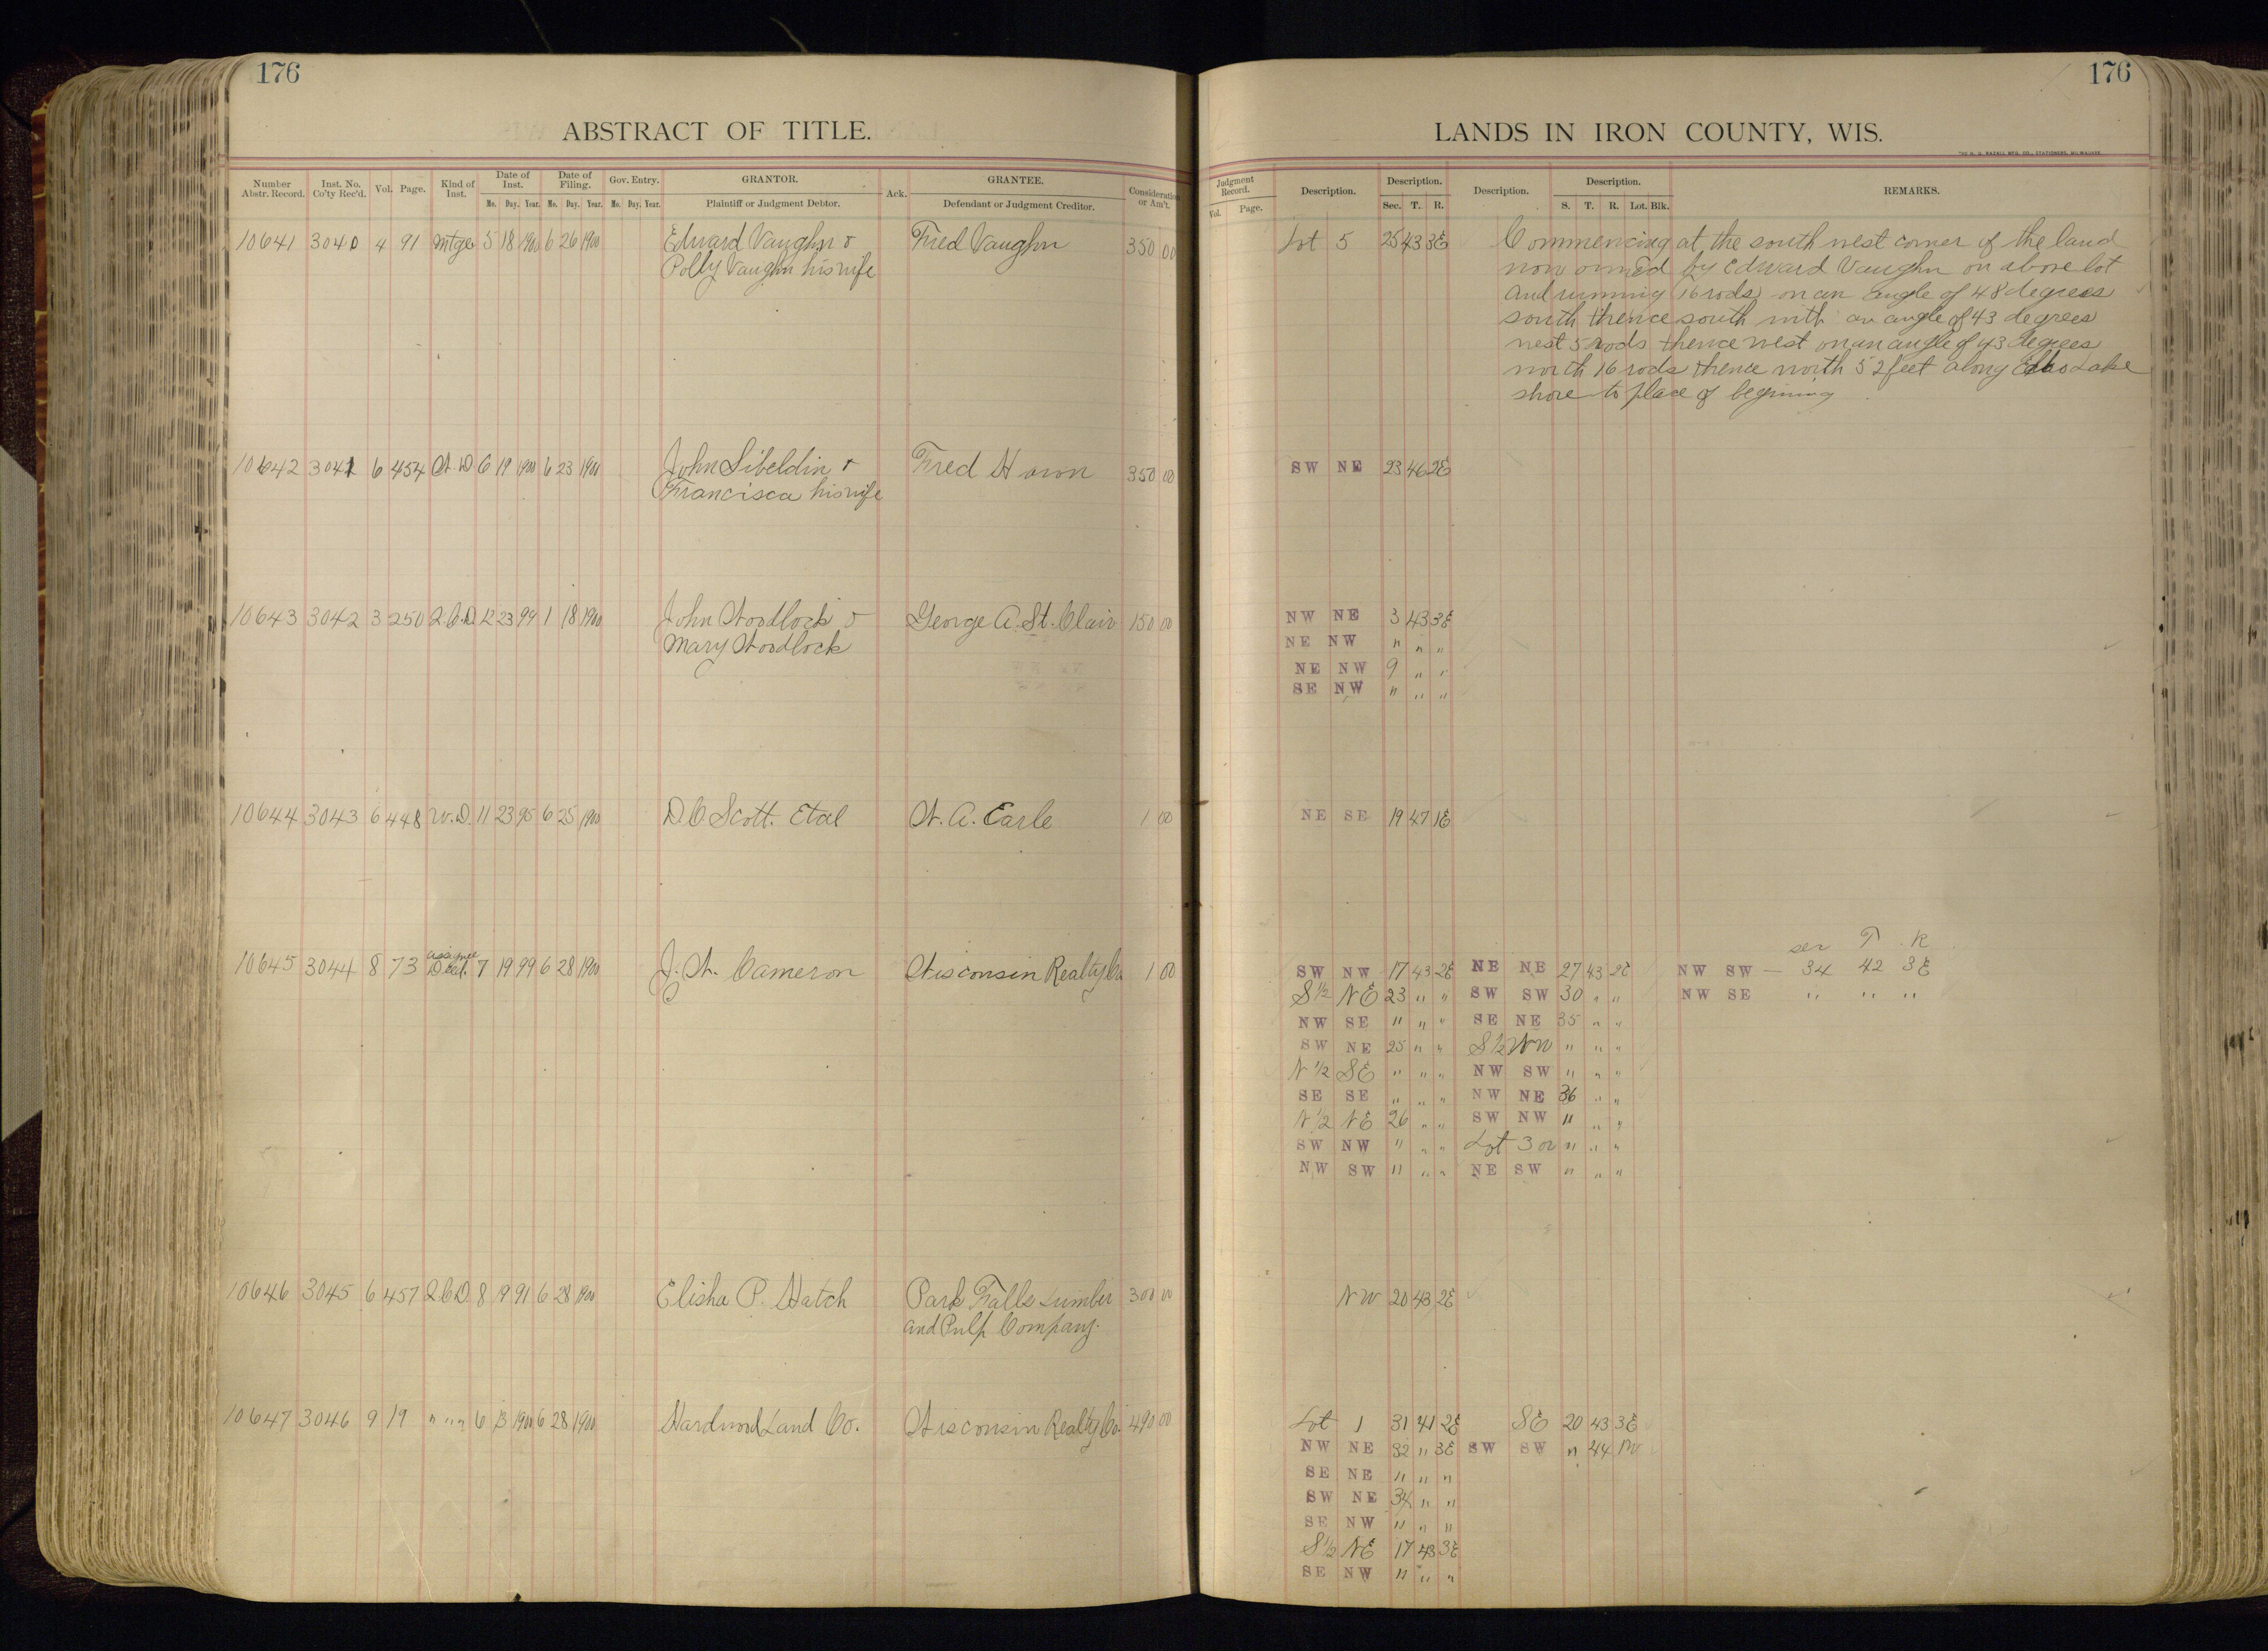 176
ABSTRACT OF TITLE.
Number Abstr. Record. Inst. No. Co'ty Rec'd. Vol. Page. Kind of Inst. Date of Inst. Date of Filing. Gov. Entry. GRANTOR. Ack. GRANTEE. Consideration or Am't.
Mo. Day. Year. Mo. Day. Year. Mo. Day. Year. Plaintiff or Judgment Debtor. Defendant or Judgment Creditor.
10641 3040 4 91 Mtge 5 18 1900 6 26 1900 Edward Vaughn & Fred Vaughn 350 00
Polly Vaughn his wife
10642 3041 6 454 W.D. 6 19 1900 6 23 1900 John Sibeldin & Fred Hown 350 00
Francisca his wife
10643 3042 3 250 Q.C.D. 12 23 99 1 18 1900 John Woodlock & George A. St. Clair 150 00
Mary Woodlock
10644 3043 6 448 W.D. 11 23 95 6 25 1900 D.C. Scott. Etal W. A. Earle 1 00
10645 3044 8 73 7 19 99 6 28 1900 J. W. Cameron Wisconsin Realty Co. 1 00
10646 3045 6 457 Q.C.D. 8 19 91 6 28 1900 Elisha P. Hatch Park Falls Lumber 300 00
and Pulp Company.
10647 3046 9 19 " " " 6 13 1900 6 28 1900 Hardwood Land Co. Wisconsin Realty Co. 490 00
176
LANDS IN IRON COUNTY, WIS.
Judgment Record. Description. Description. Description. Description. REMARKS.
Vol. Page. Sec. T. R. S. T. R. Lot. Blk.
Lot 5 25 43 3E Commencing at the south west corner of the land
now owned by Edward Vaughn on above lot
and running 16 rods on an angle of 48 degrees
south thence south with an angle of 43 degrees
west 5 rods thence west on an angle of 43 degrees
north 16 rods thence north 52 feet along Lake
shore to place of begining
SW NE 23 46 2E
NW NE 3 43 3E
NE NW " " "
NE NW 9 " "
SE NW " " "
NE SE 19 47 1E
sec T R
SW NW 17 43 2E NE NE 27 43 2E NW SW — 34 42 3E
S½ NE 23 " " SW SW 30 " " NW SE " " "
NW SE " " " SE NE 35 " "
SW NE 25 " " S½ NW " " "
N½ SE " " " NW SW " " "
SE SE " " " NW NE 36 " "
N½ NE 26 " " SW NW " " "
SW NW " " " Lot 3 or " " "
NW SW " " " NE SW " " "
NW 20 43 2E
Lot 1 31 41 2E SE 20 43 3E
NW NE 32 " 3E SW SW " 44 1W
SE NE " " "
SW NE 34 " "
SE NW " " "
S½ NE 17 43 3E
SE NW " " "